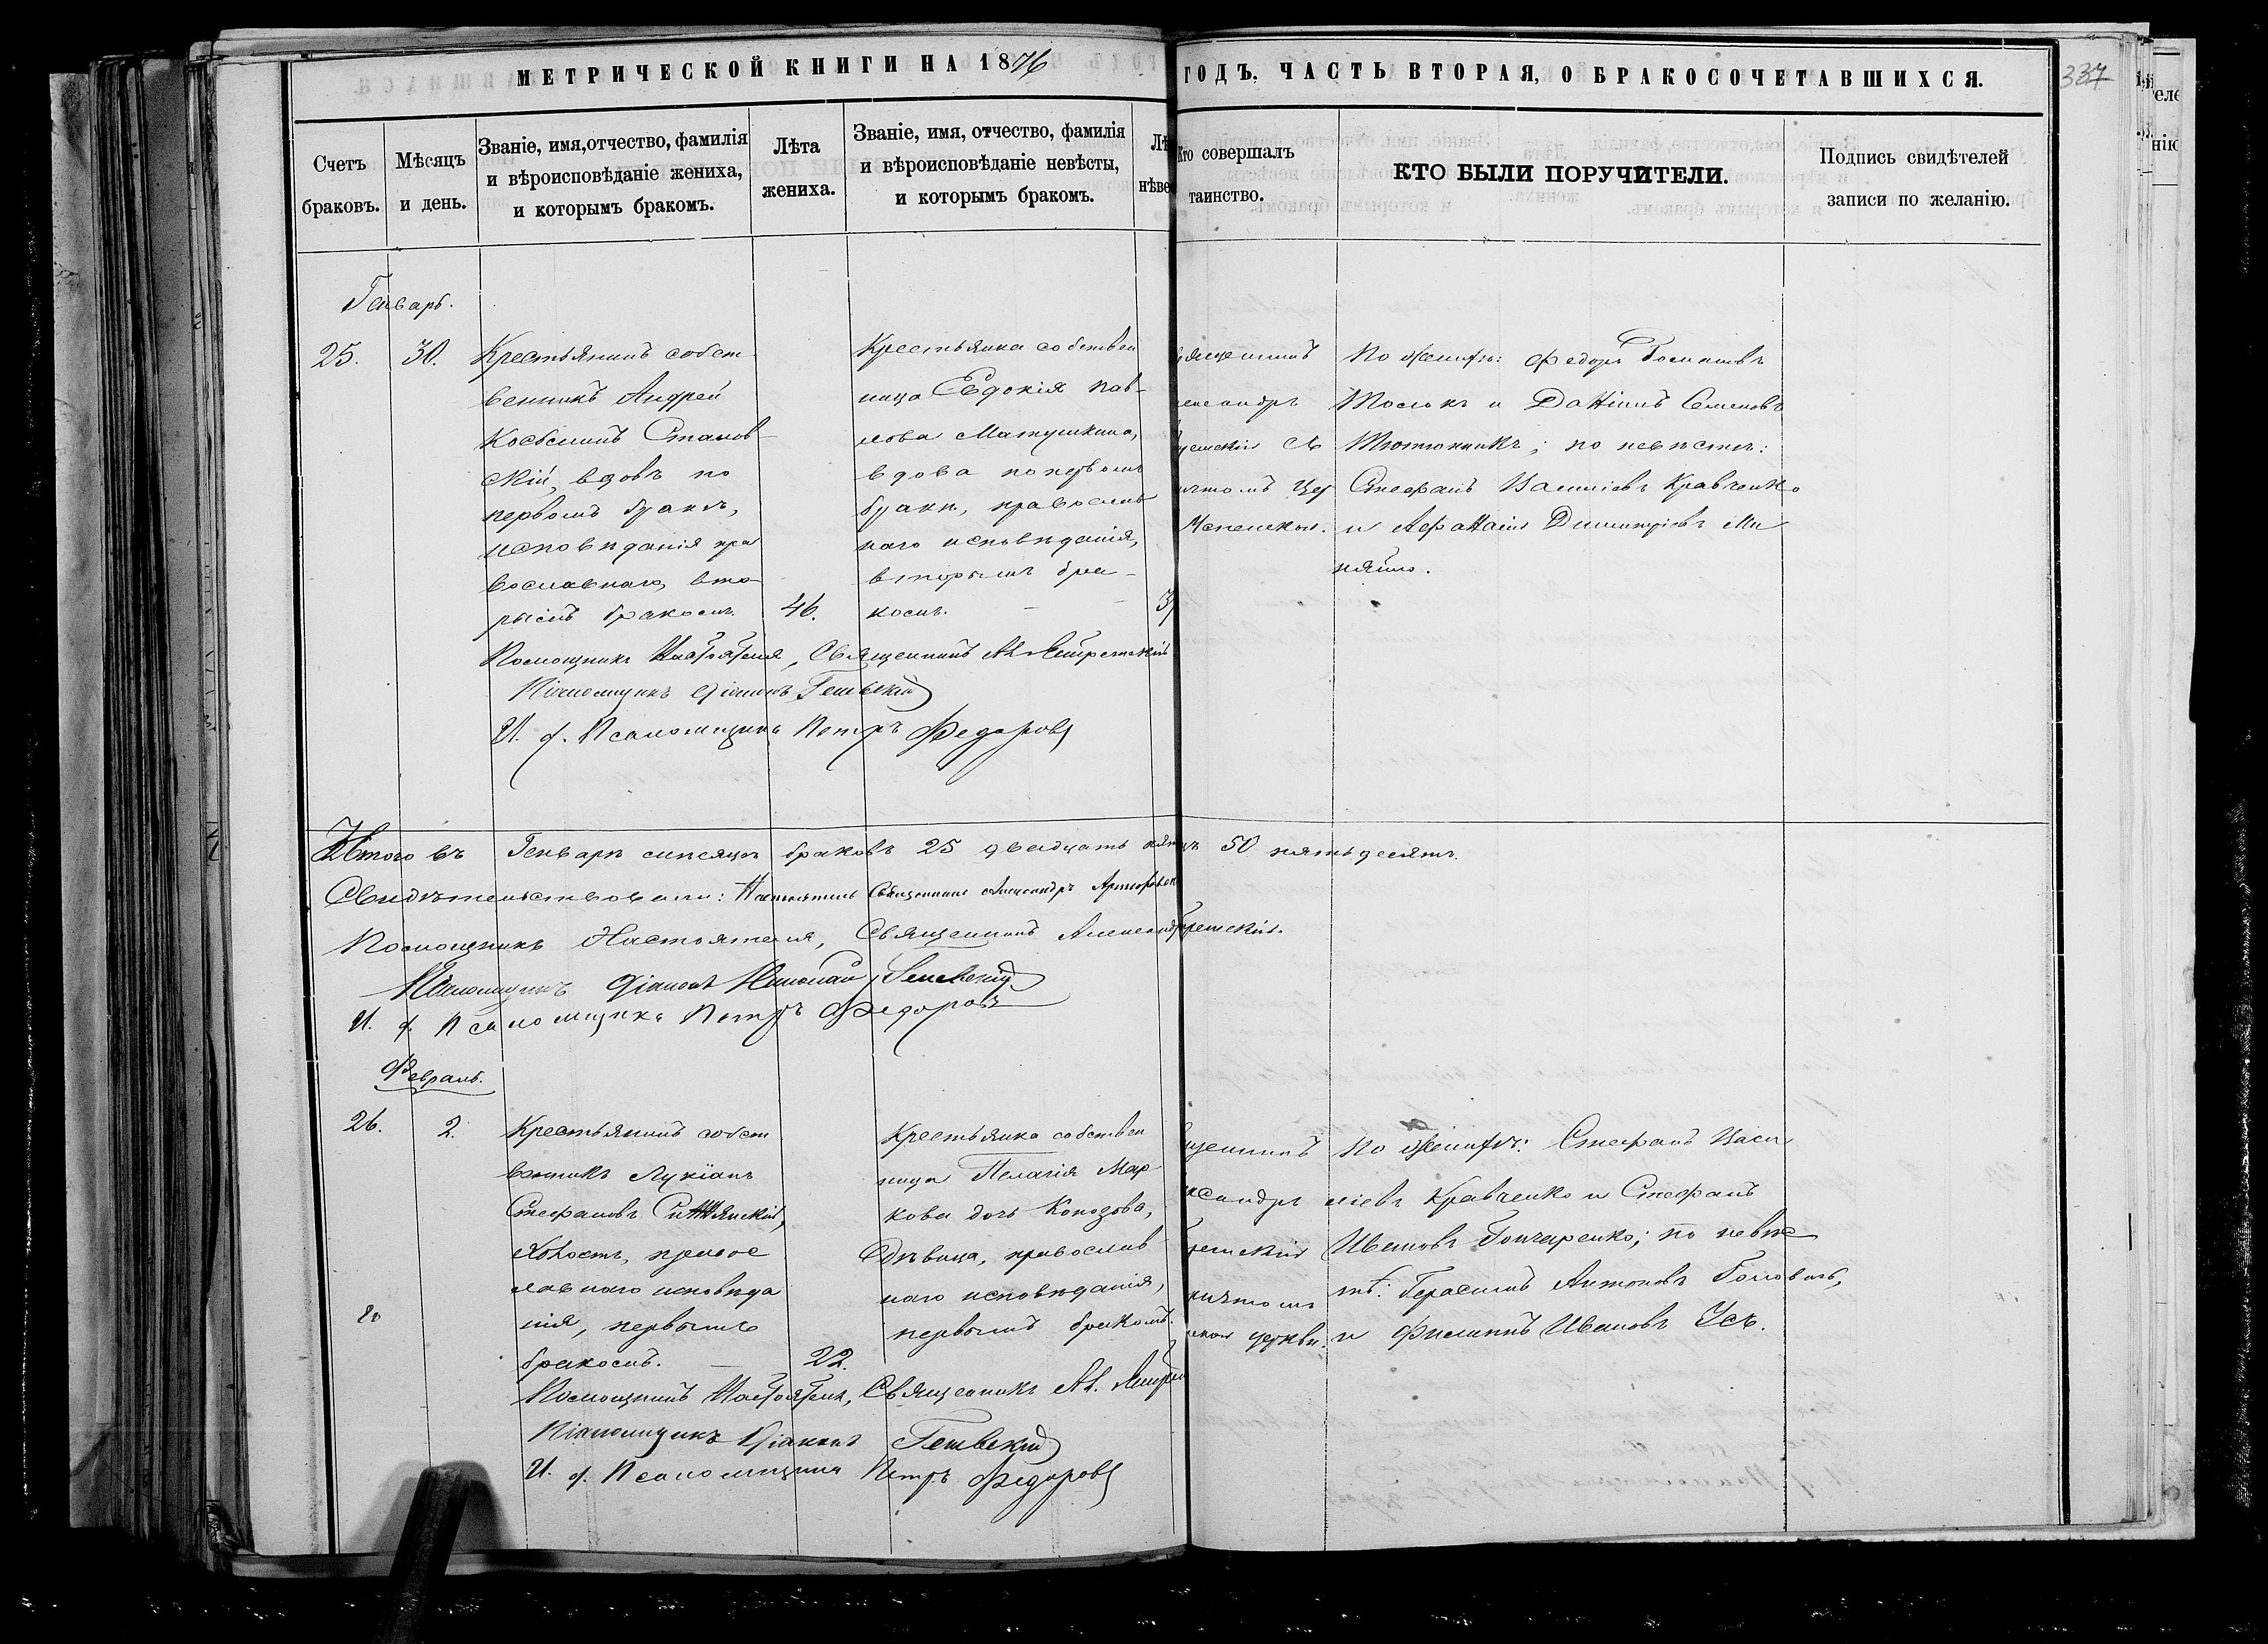 МЕТРИЧЕСКОЙ КНИГИ НА 1876
ГОДЪ, ЧАСТЬ ВТОРАЯ, О БРАКОСОЧЕТАВШИХСЯ.
337
Счетъ
браковъ.
Мѣсяцъ
и день.
Званіе, имя, отчество, фамилія
и вѣроисповѣданіе жениха,
и которымъ бракомъ.
Лѣта
жениха.
Званіе, имя, отчество, фамилія
и вѣроисповѣданіе невѣсты,
и которымъ бракомъ.
Лѣ
нѣвес
Кто совершалъ
таинство.
КТО БЫЛИ ПОРУЧИТЕЛИ.
Подпись свидѣтелей
записи по желанію.
Генварь.
25.
30.
Крестьянинъ собст
венникъ Андрей
Косьминъ Станов-
скій, вдовъ по
первомъ бракѣ,
исповѣданія пра
вославнаго, вто-
рымъ бракомъ.
46.
Крестьянка собствен
ница Евдокія Пав-
лова Матушкина,
вдова по первомъ
бракѣ, православ
наго исповѣданія,
вторымъ бра-
комъ.
ященникъ
ександръ
съ
ичтомъ Цер
Успенской.
По женихѣ: Федоръ
и Даніилъ Семеновъ
Тютюнникъ; по невѣстѣ:
Стефанъ Василіевъ Кравченко
и Афанасій Димитріевъ Ми
няйло.
Помощникъ Настоятеля, Священникъ Ал.
Псаломщикъ Діаконъ
И. д. Псаломщика Петръ Федоровъ
Итого въ Генварѣ мѣсяцѣ браковъ 25 двадцать пять 50 пятьдесятъ.
Свидѣтельствовали: Настоятель Священникъ Александръ
Помощникъ Настоятеля, Священникъ Александръ
Псаломщикъ Діаконъ Николай
И. д. Псаломщика Петръ Федоровъ
Февраль.
26.
2.
Крестьянинъ собст
венникъ Лукіанъ
Стефановъ
холостъ, правос
лавнаго исповѣда
нія, первымъ
бракомъ.
22.
Крестьянка собствен
ница Пелагія Мар
кова дочь Коноз­ова,
дѣвица, православ
наго исповѣданія,
первымъ бракомъ.
щенникъ
ксандръ
ричтомъ
ской церкви.
По женихѣ: Стефанъ Васи
ліевъ Кравченко и Стефанъ
Ивановъ Гончаренко; по невѣс
тѣ: Герасимъ Антоновъ Головань,
и Филиппъ Ивановъ Усъ.
Помощникъ Настоятеля, Священникъ Ал.
Псаломщикъ Діаконъ
И. д. Псаломщика Петръ Федоровъ